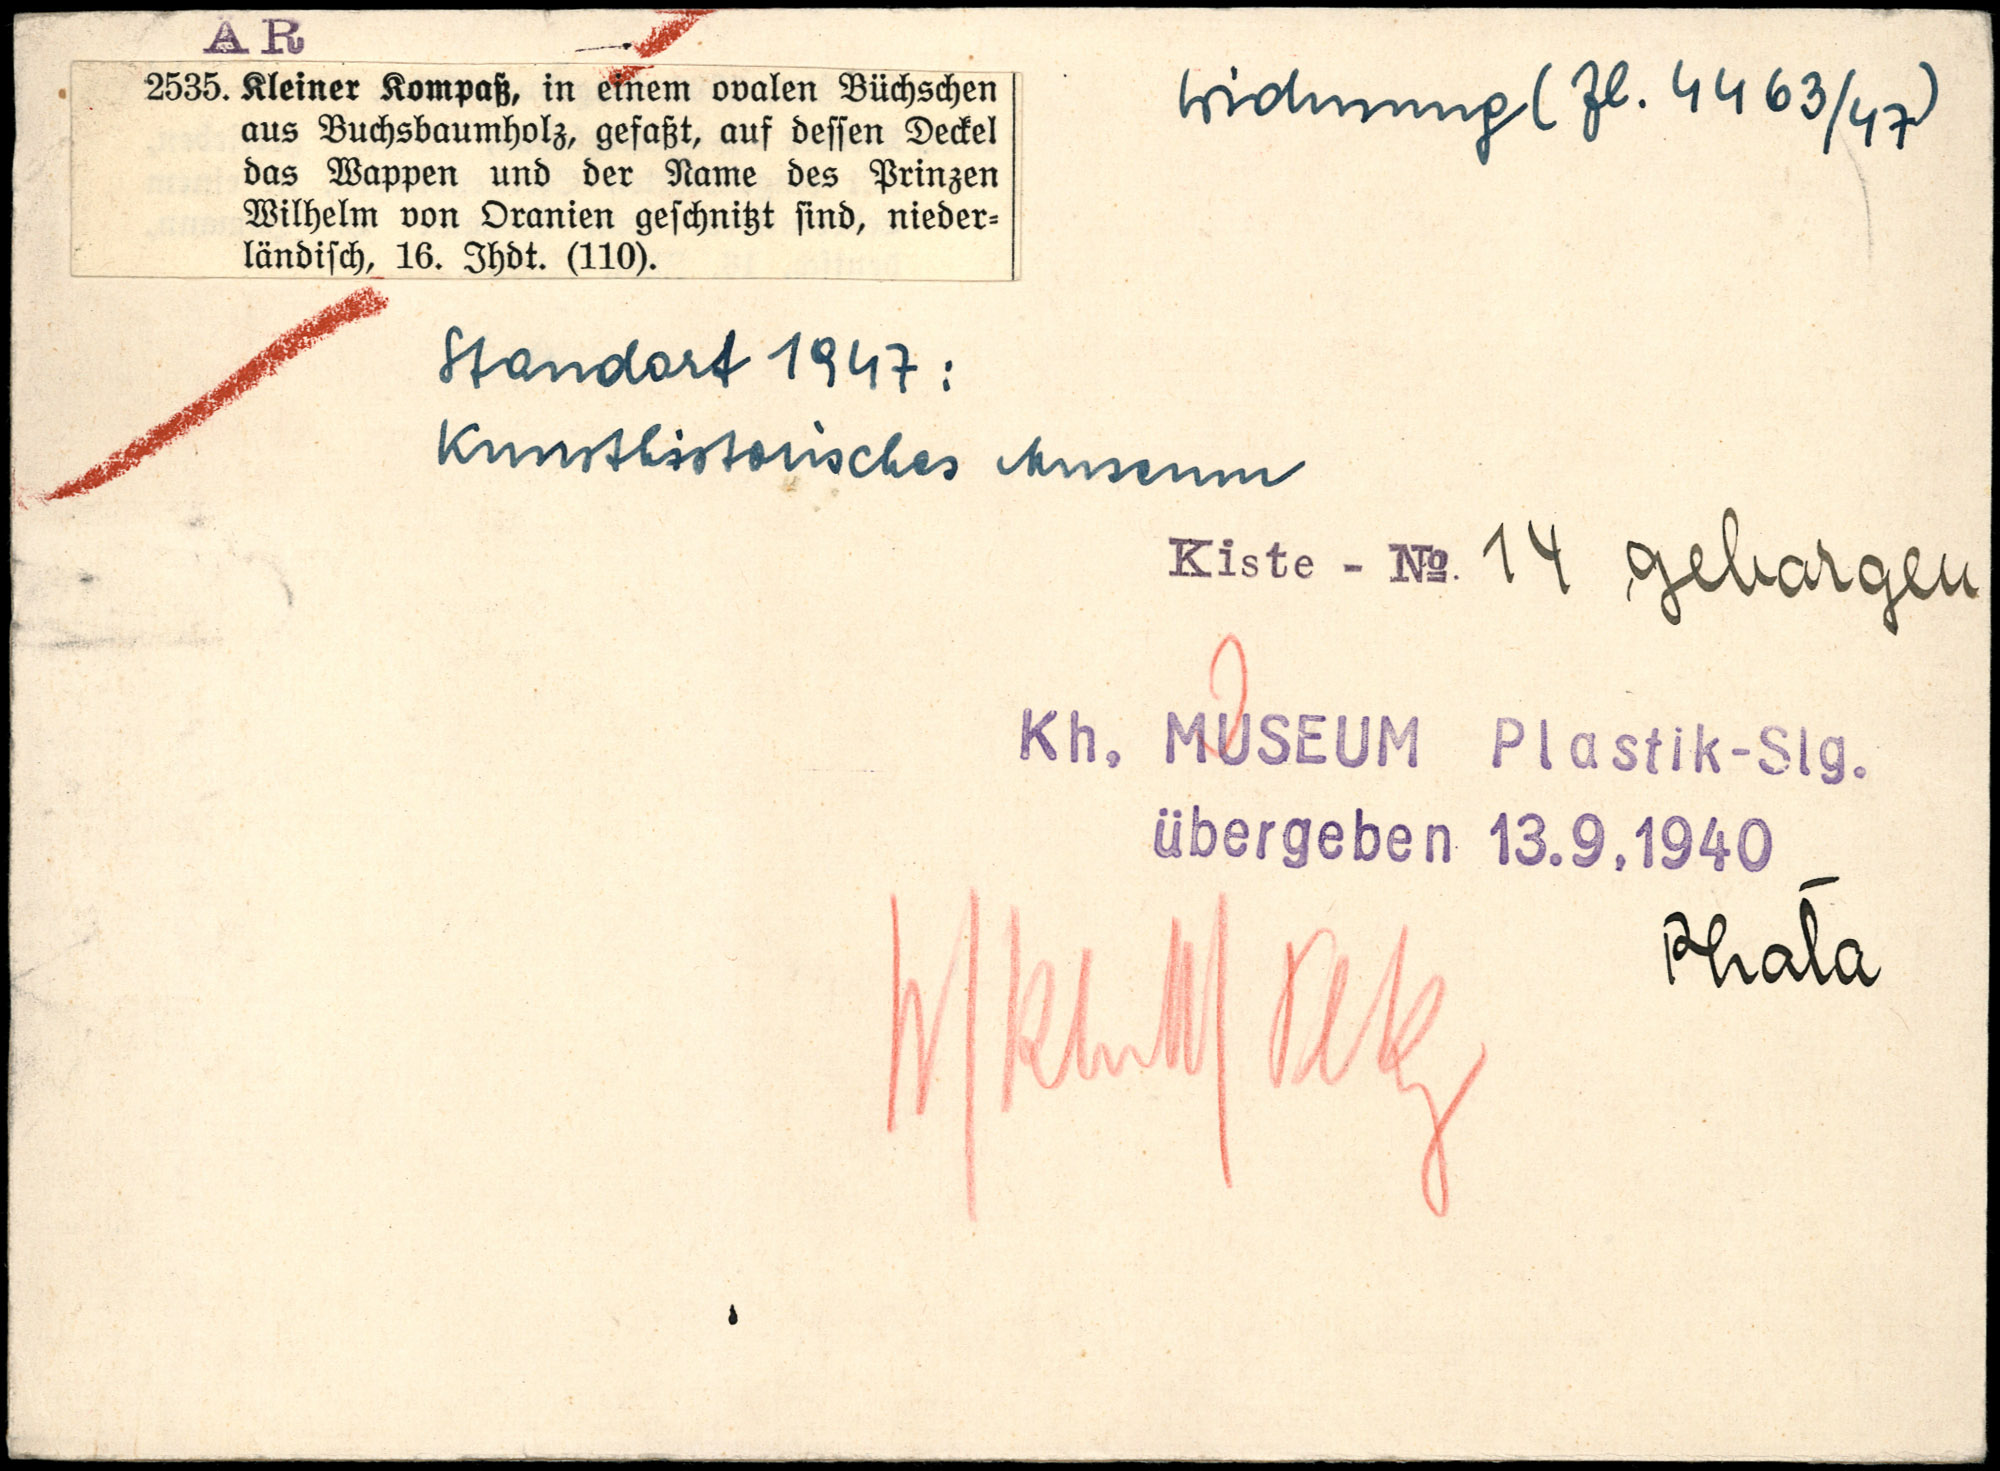 AR
2535. Kleiner Kompaß, in einem ovalen Büchschen
aus Buchsbaumholz, gefaßt, auf dessen Deckel
das Wappen und der Name des Prinzen
Wilhelm von Oranien geschnitzt sind, nieder-
ländisch, 16. Jhdt. (110).
Widmung (Zl. 4463/47)
Standort 1947:
Kunsthistorisches Museum
Kiste - No. 14 geborgen
Kh. MUSEUM Plastik-Slg.
übergeben 13.9.1940
Photo